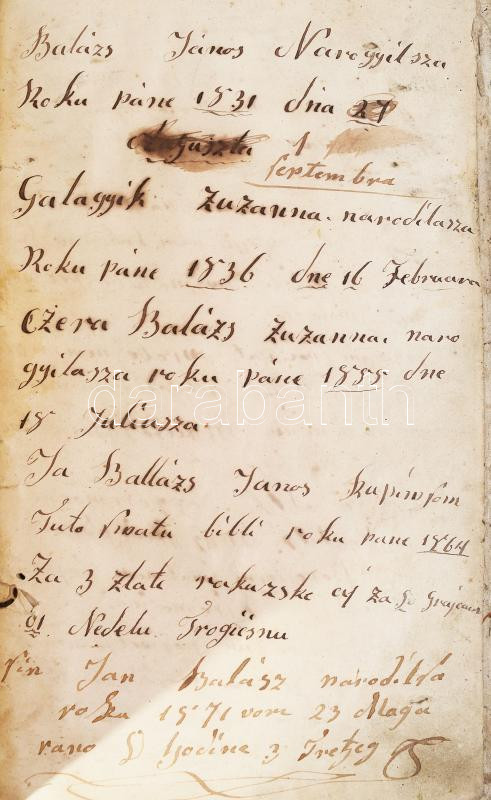 Balázs János Narogyilsza
Roku páne 1831 dna 27
Auguszta 1
septembra
Galagyik Zuzanna. narodilasza
Roku páne 1836 dne 16 Februara
Czera Balázs Zuzanna. naro
gyilasza roku páne 1855 dne
18 Juliusza
darabanth
Ja Ballázs Janos
Tuto swatu bibli roku pane 1864
Za 3 zlate rakuzske
61 Nedelu Trogicsnu
sin Jan Balász narodilsa
roku 1871 23 Maga
rano hodine 3